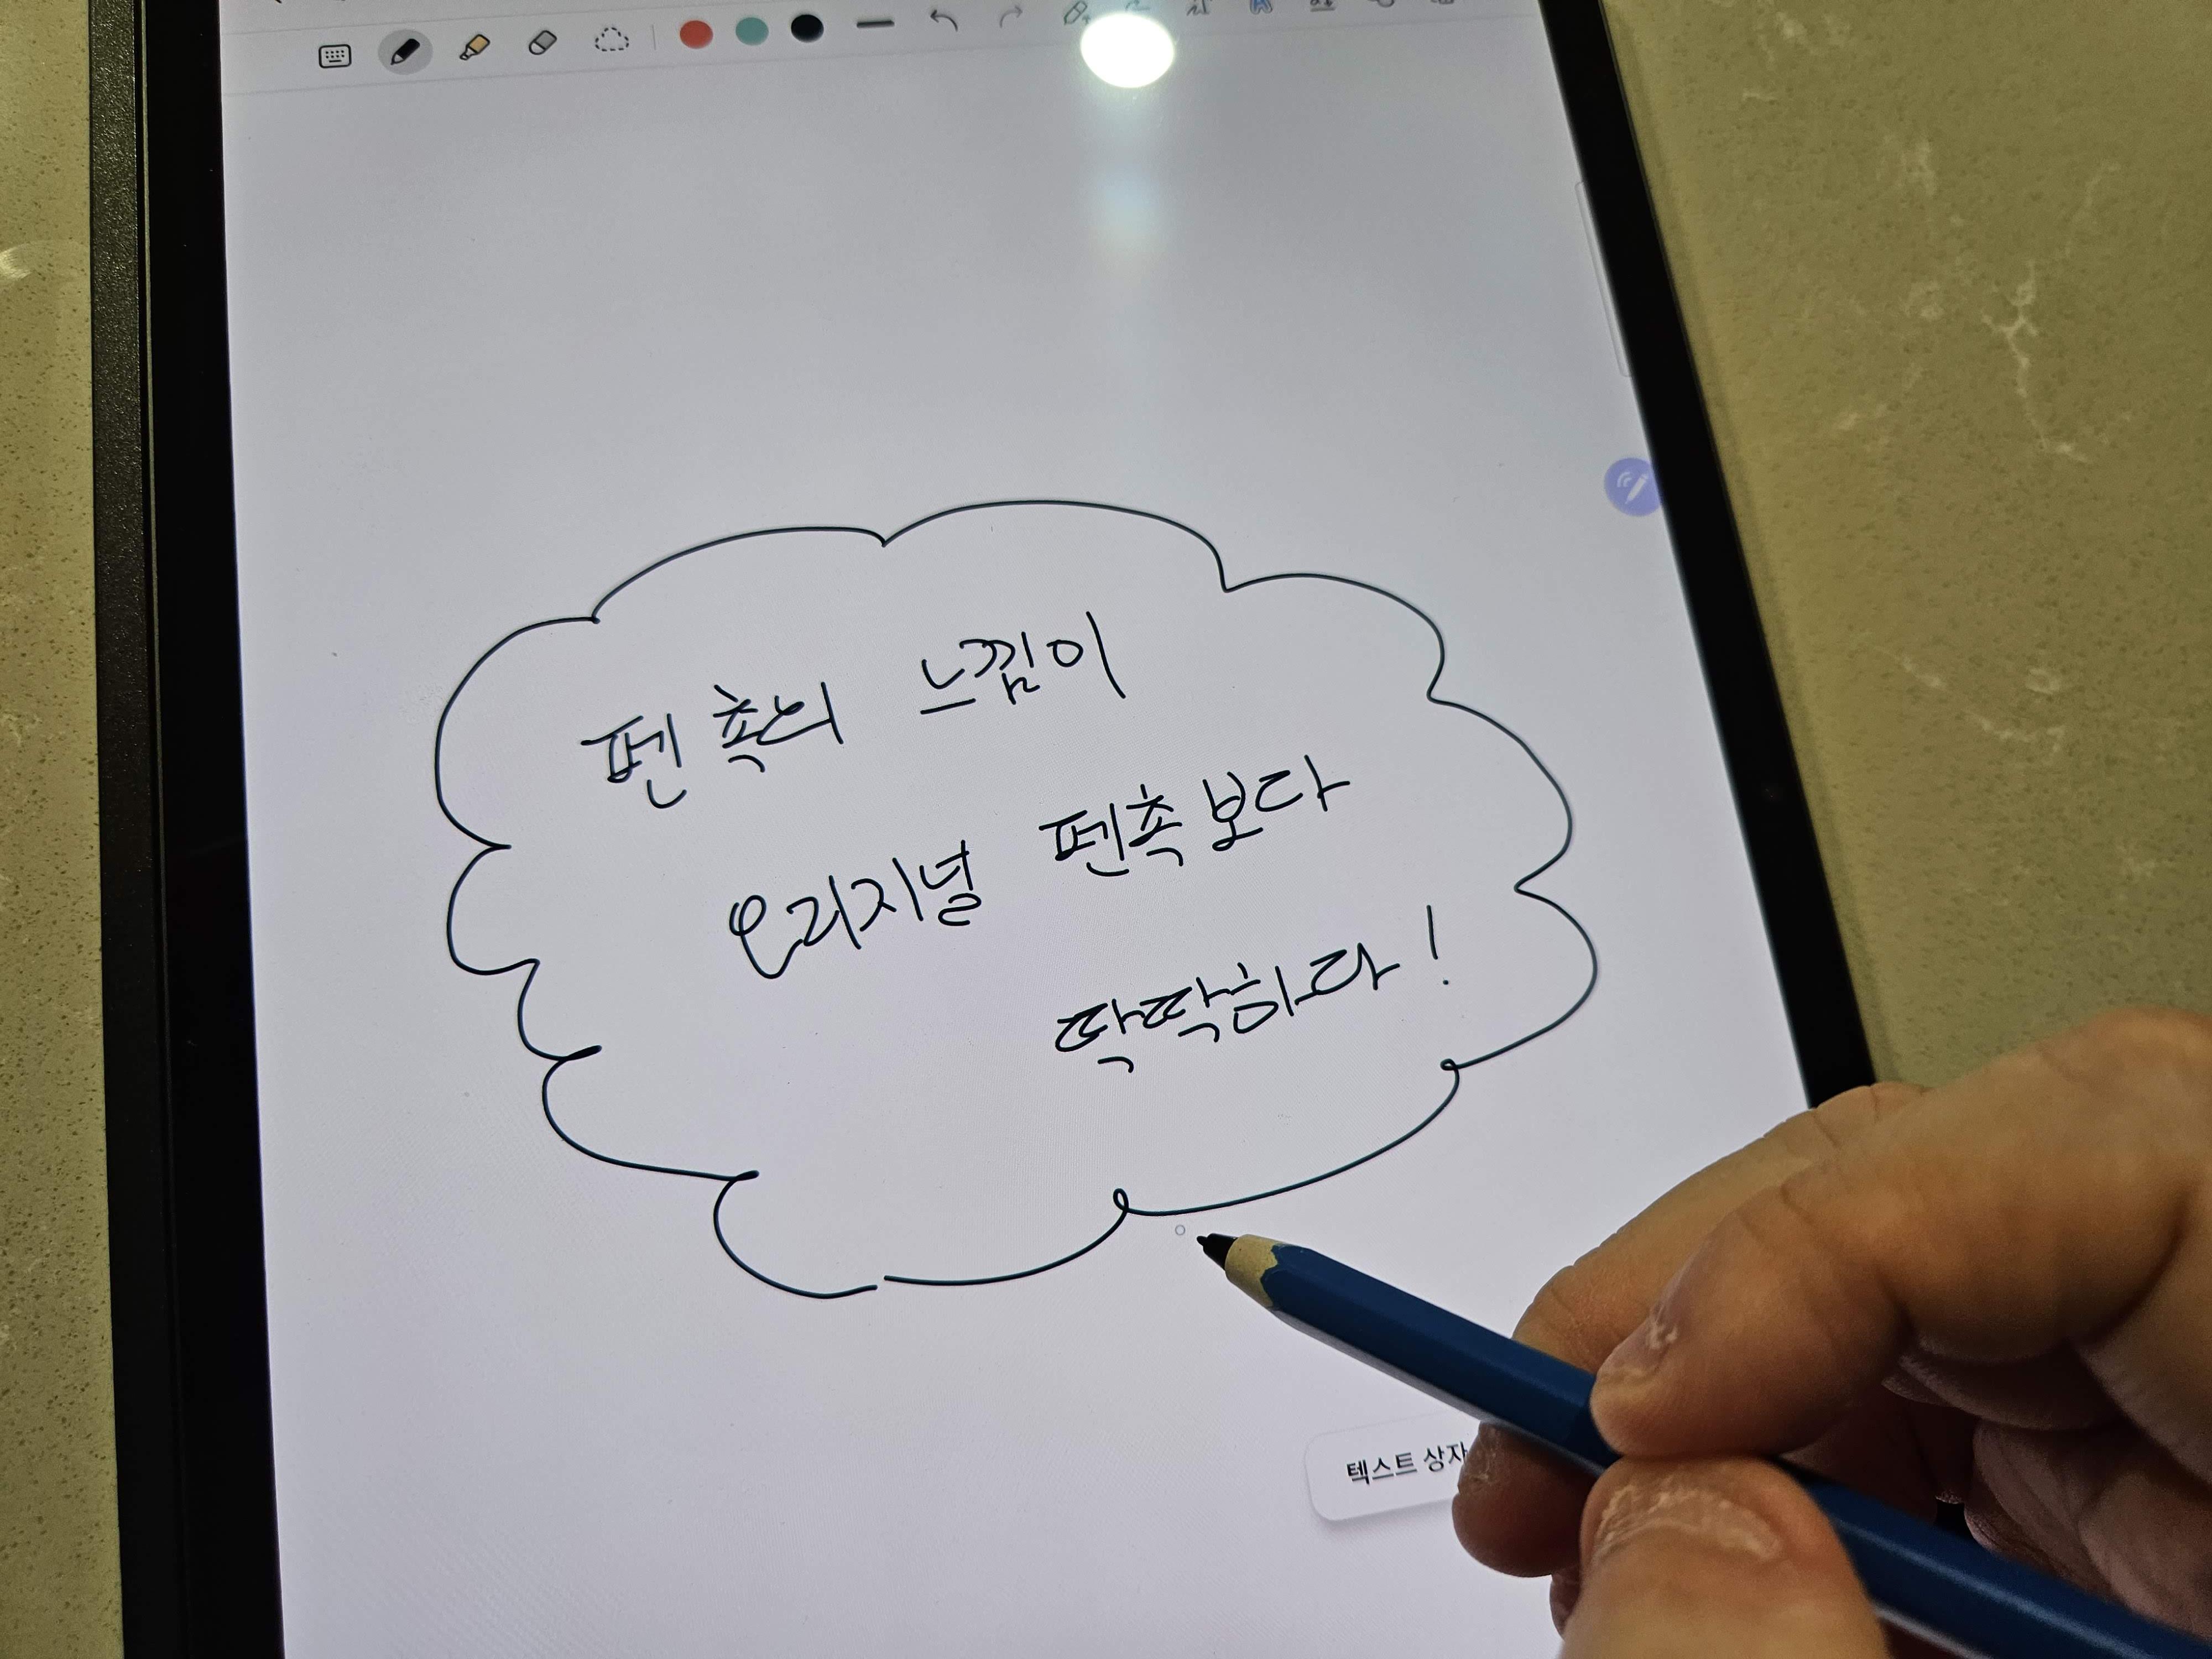 펜촉의 느낌이
오리지널 펜촉보다
딱딱하다!
텍스트 상자